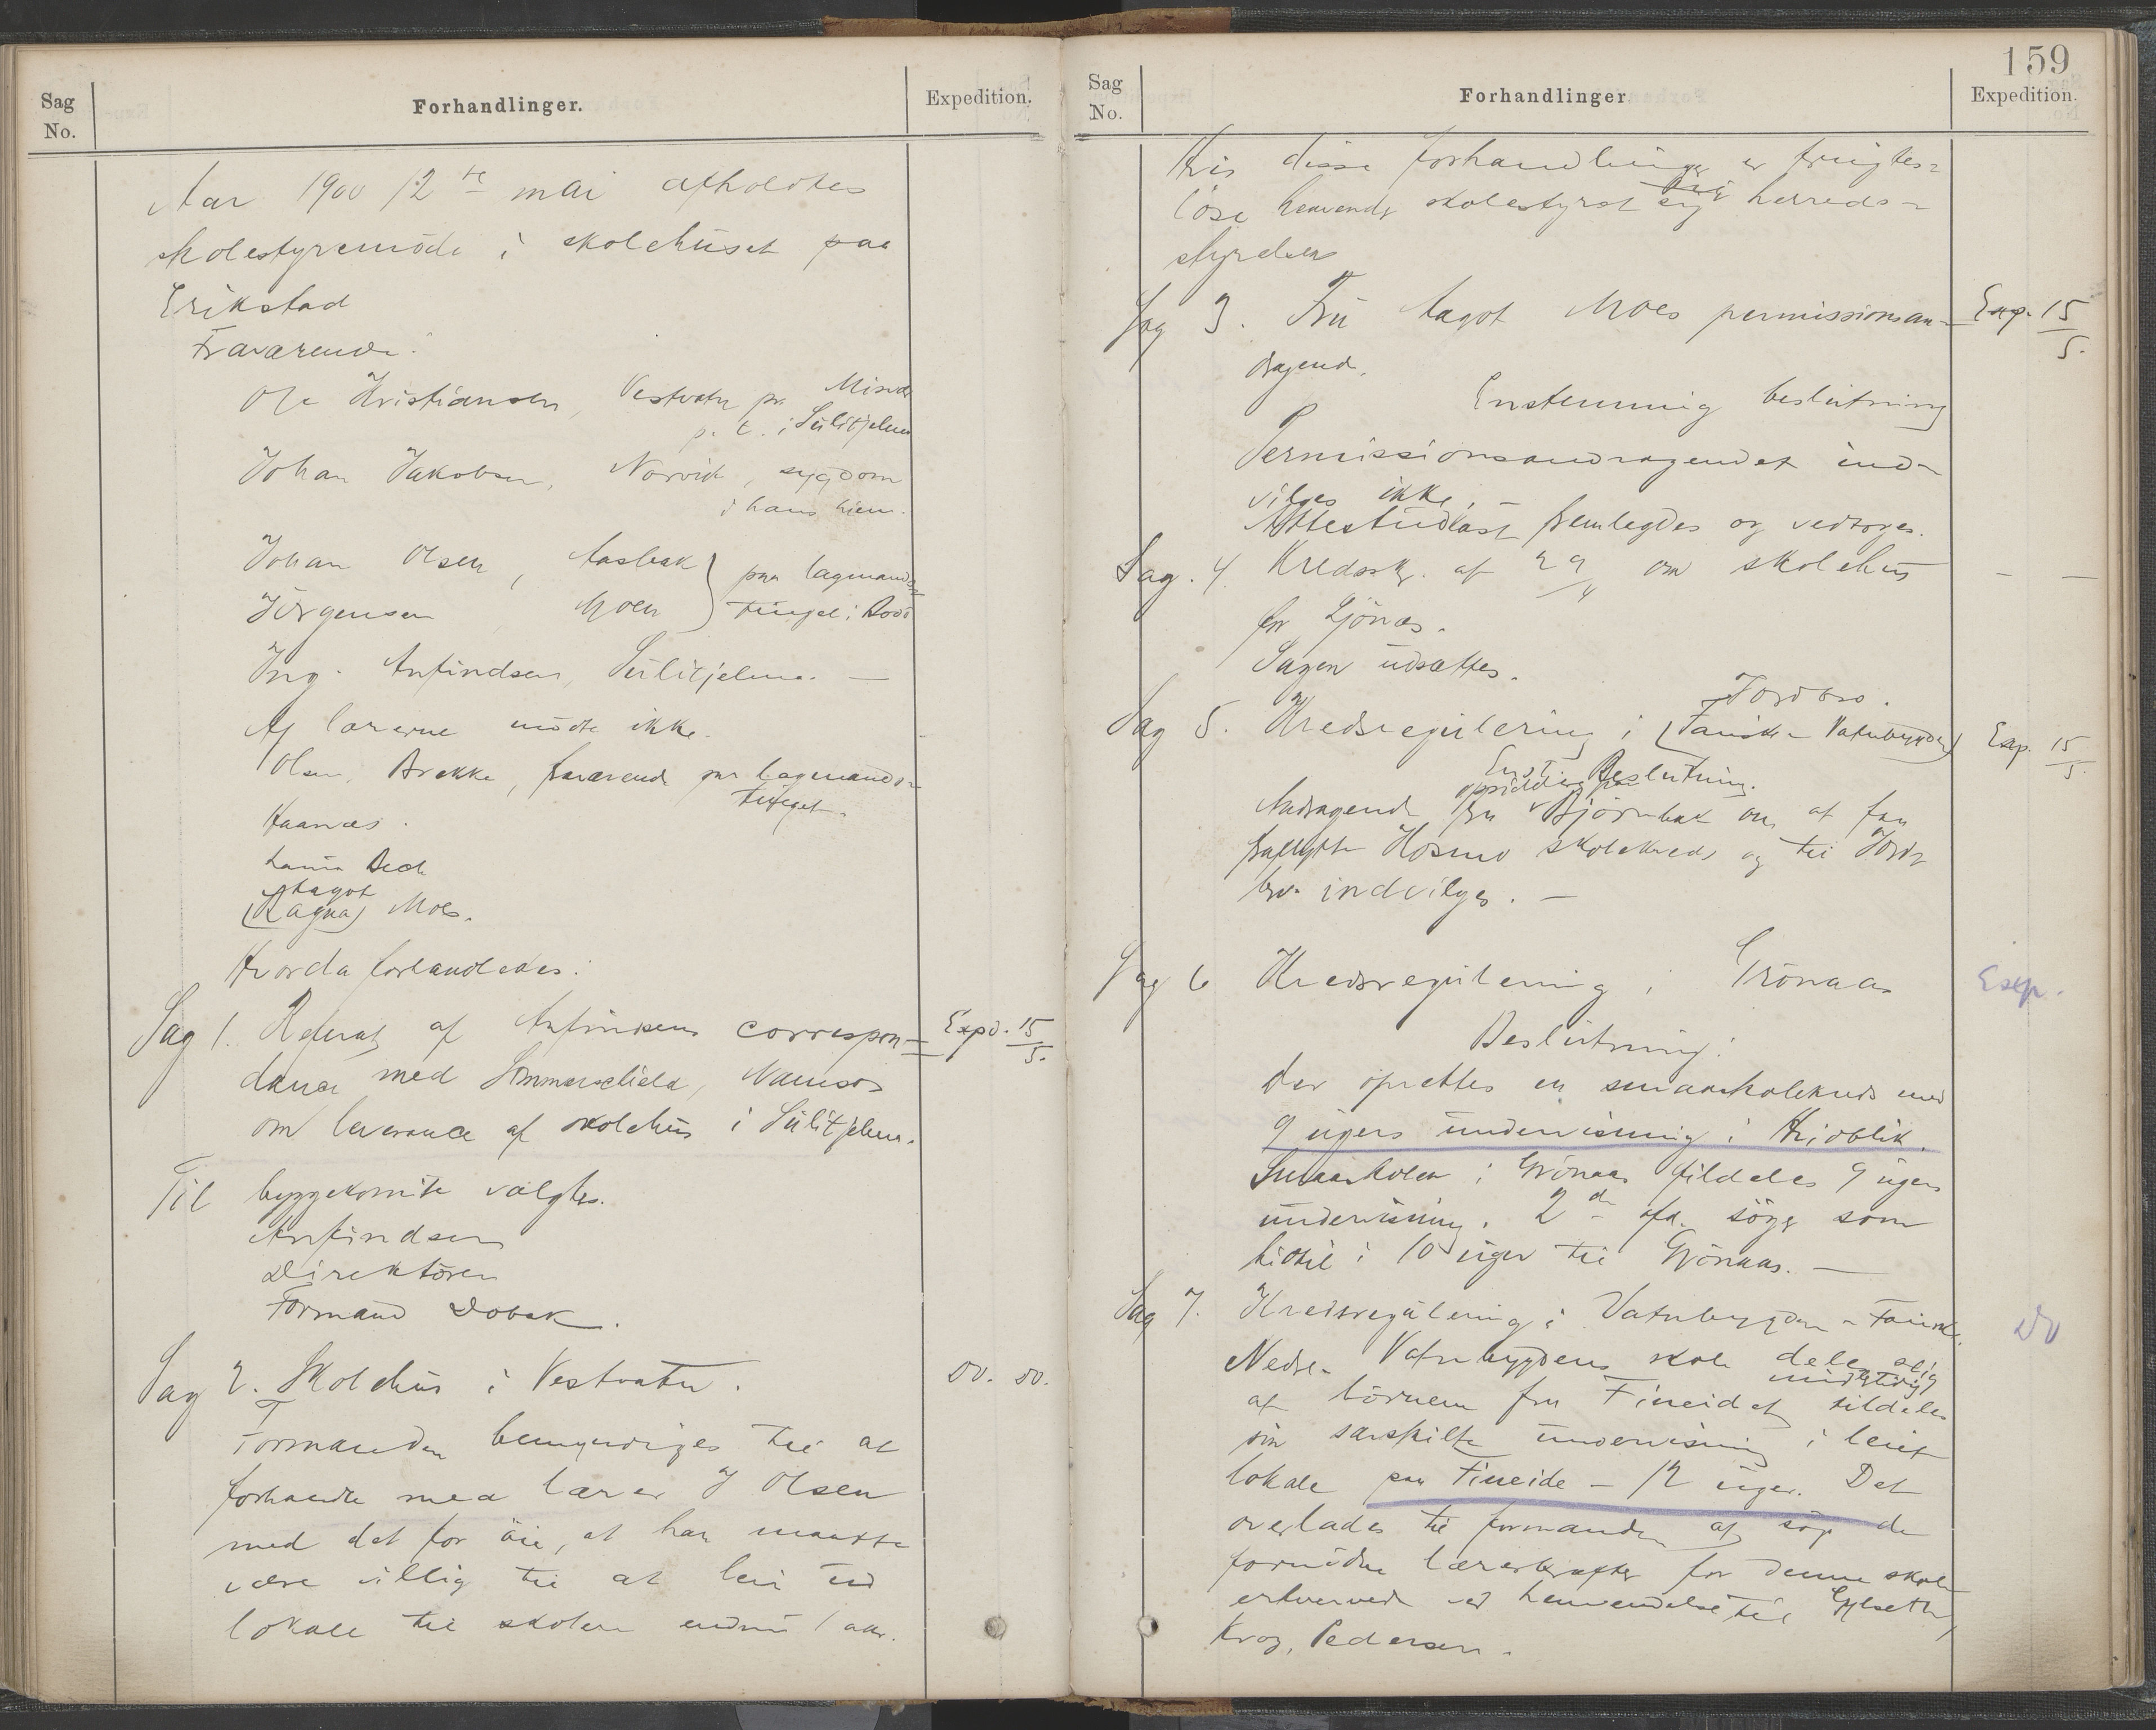 Sag
No.
Forhandlinger.
Expedition.
Aar 1900 12te mai afholdtes
skolestyremöde i skolehuset paa
Erikstad
Fraværende:
Ole Kristiansen, Vestvatn pr. Misvær
p. t. i Sulitjelma
Johan Jakobsen, Norvik, sygdom
i hans hiem.
Johan Olsen, Aasbak } paa lagmands
Jörgensen, Moen } tinget i Bodö
Ing. Anfindsen, Sulitjelma. —
Af lærerne mödte ikke.
Olsen, Brekke, fraværende paa lagmands-
tinget.
Haanæs.
Laura Bech
Aagot
(Ragna) Moes.
Hvorda forhandledes:
Sag 1. Referat af Anfindsens correspon-
Expd. 15/5.
dance med Sommerschield, Namsos
om leverance af skolehus i Sulitjelma.
Til byggekomite valgtes.
Anfindsen
Direktören
Formand Dobak.
Sag 2. Skolehus i Vestvatn.
Do. do.
Formanden bemyndiges til at
forhandle med lærer J Olsen
med det for öie, at han maatte
være villig til at leie ud
lokale til skolen endnu 1 aar.
159
Sag
No.
Forhandlinger.
Expedition.
Hvis disse forhandlinger er frugtes-
löse henvender skolestyret sig til herreds-
styrelsen
Sag 3. Fru Aagot Moes permissionsan-
Exp. 15/5.
dragende.
Enstemmig beslutning
Permissionsandragendet ind-
vilges ikke. —
Attestudkast fremlegdes og vedtoges.
Sag. 4. Kredssk. af 29/4 om skolehus
— —
for Ljönes.
Sagen udsættes.
Jordbro.
Sag 5. Kredsregulering i (Fauske - Vatnbygden)
Exp. 15/5.
Enst. Beslutning.
opsidderne paa
Andragende fra Björnbak om at faa
fraflytte Hosmo skolekreds og til Jord-
bro indvilges. —
Sag 6 Kredsregulering i Grönaas
Exp.
Beslutning:
Der oprettes en smaaskolekreds med
9 ugers undervisning i Hvidblik.
Smaaskolen i Grönaas tildeles 9 ugers
undervisning. 2de afd. söger som
hidtil i 10 uger til Grönaas. —
Sag 7. Kredsregulering i Vatnbygden - Fauske.
Do
Nedre Vatnbygdens skole deles slig
midlertidig
at börnene fra Fineidet tildeles
sin særskilte undervisning i leiet
lokale paa Fineide - 12 uger. Det
overlades til formanden at söge de
fornödne lærerkræfter for denne skole
erhvervede ved henvendelse til Gylseth,
Krog, Pedersen.